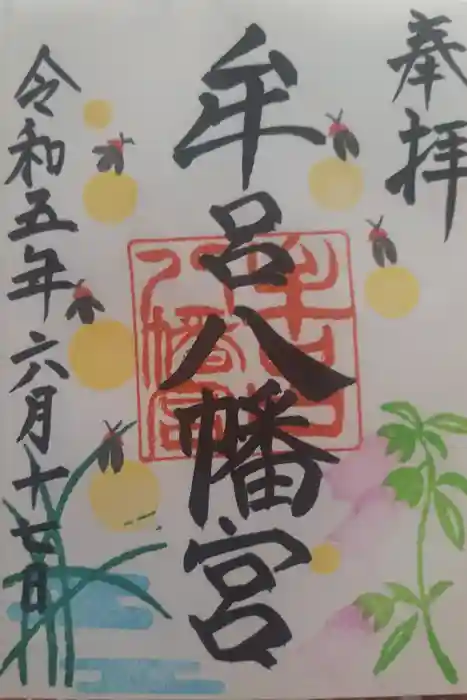 奉拝
牟呂八幡宮
令和五年六月十七日